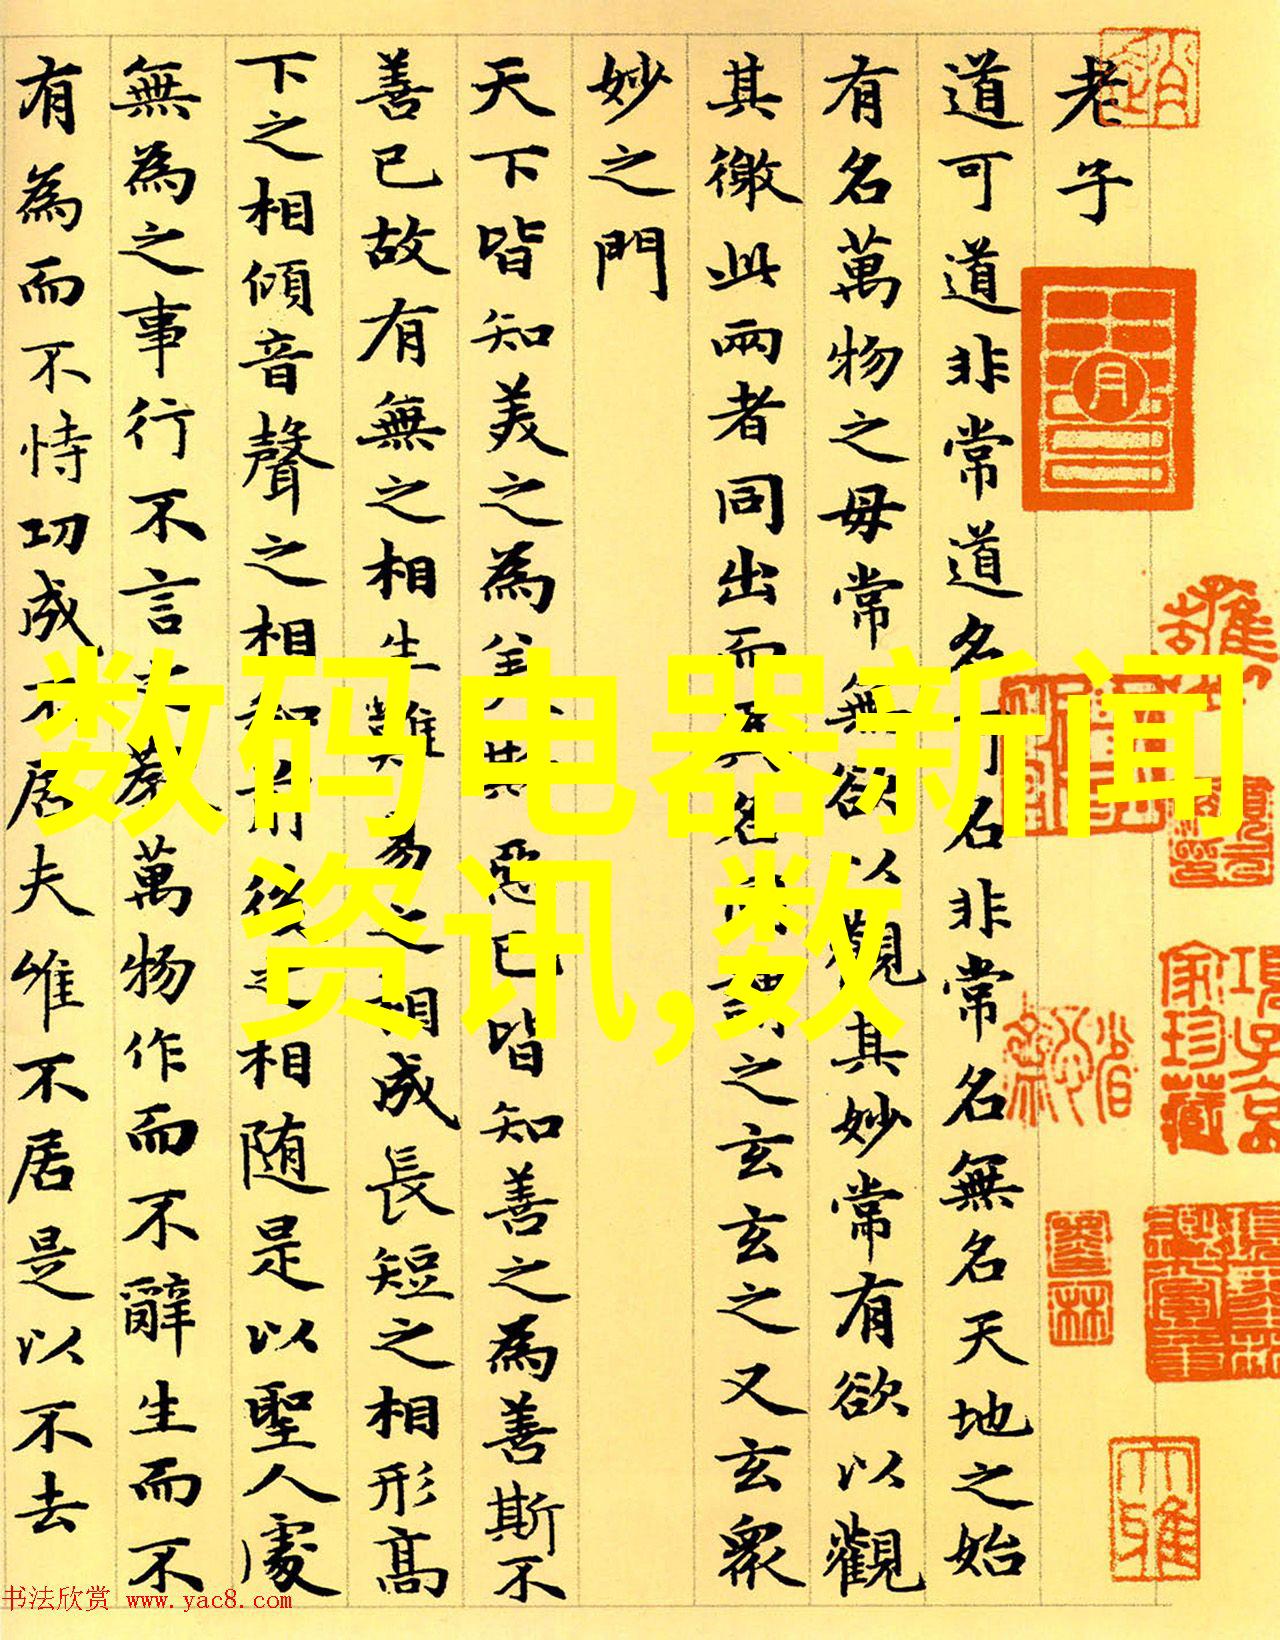 老子
道可道非常道名可名非常名無名天地之始
有名萬物之母常無欲以觀其妙常有欲以觀
其徼此兩者同出而異名同謂之玄玄之又玄衆
妙之門
天下皆知美之為美斯惡已皆知善之為善斯不
善已故有無之相生難易之相成長短之相形高
下之相傾音聲之相和前後之相随是以聖人處
無為之事行不言之教萬物作而不辭生而不
有為而不恃功成不居夫惟不居是以不去
项子京
家珍藏
数码电器新闻
资讯,数
书法欣赏 www.yac8.com